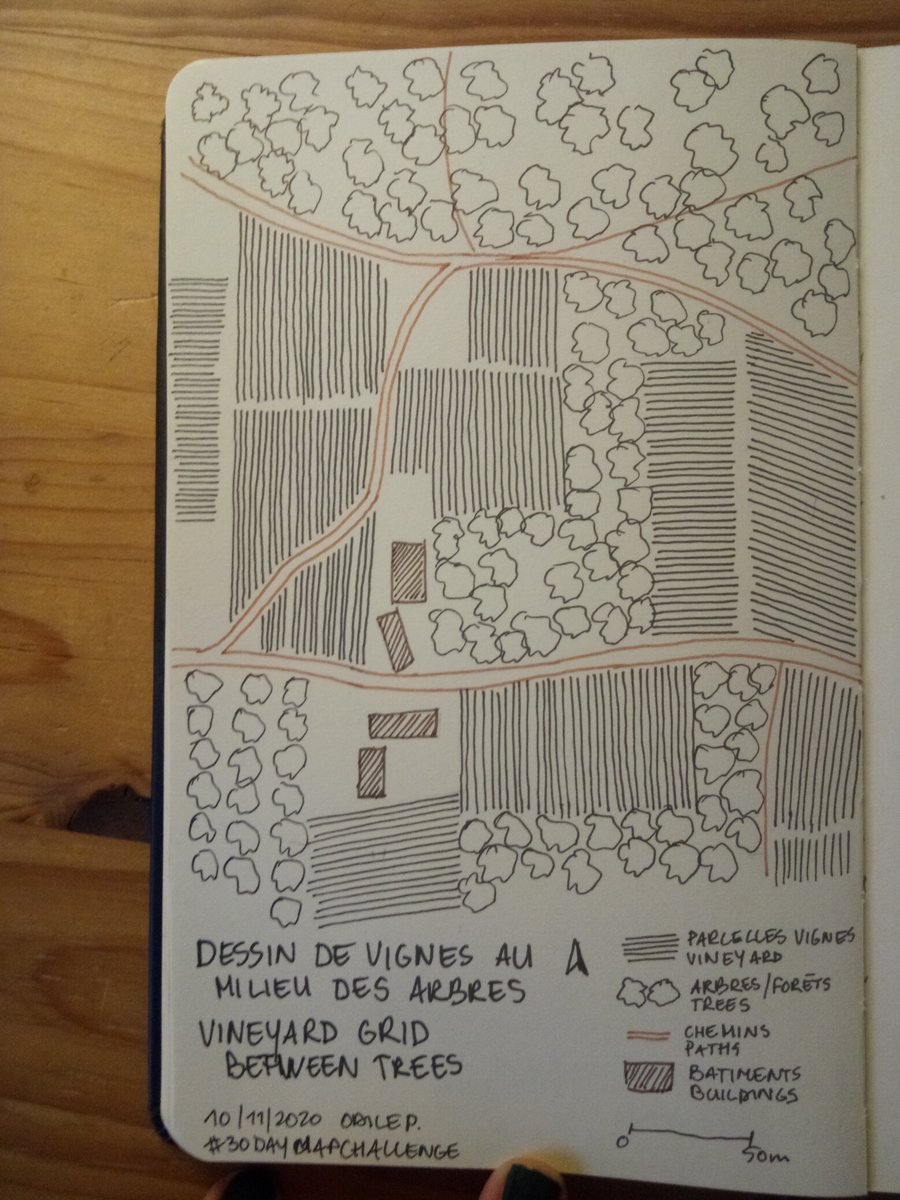 DESSIN DE VIGNES AU
MILIEU DES ARBRES
VINEYARD GRID
BETWEEN TREES
10/11/2020 ODILE P.
#30DAYMAPCHALLENGE
PARCELLES VIGNES
VINEYARD
ARBRES/FORÊTS
TREES
CHEMINS
PATHS
BATIMENTS
BUILDINGS
0 50m